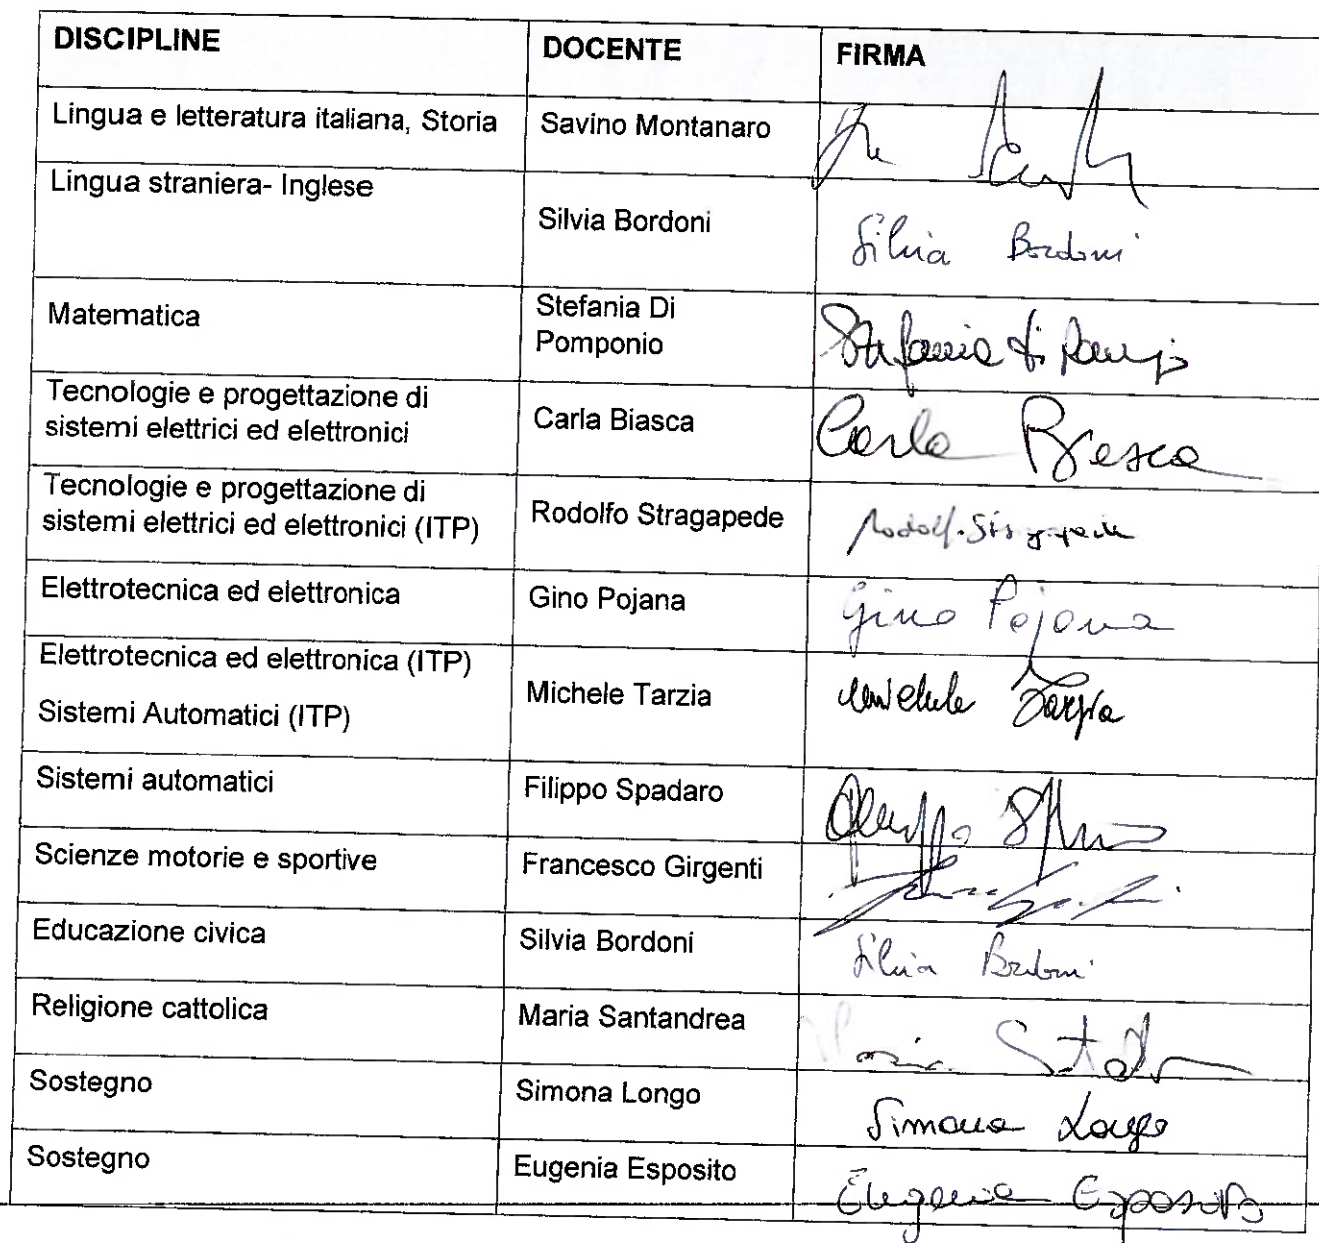 DISCIPLINE DOCENTE FIRMA
Lingua e letteratura italiana, Storia Savino Montanaro
Lingua straniera- Inglese
Silvia Bordoni Silvia Bordoni
Matematica
Stefania Di
Pomponio
Stefania Di
Tecnologie e progettazione di
sistemi elettrici ed elettronici
Carla Biasca Carla Biasca
Tecnologie e progettazione di
sistemi elettrici ed elettronici (ITP)
Rodolfo Stragapede
Elettrotecnica ed elettronica Gino Pojana Gino Pojana
Elettrotecnica ed elettronica (ITP)
Sistemi Automatici (ITP)
Michele Tarzia Michele Tarzia
Sistemi automatici Filippo Spadaro
Scienze motorie e sportive Francesco Girgenti
Educazione civica Silvia Bordoni Silvia Bordoni
Religione cattolica Maria Santandrea Maria
Sostegno Simona Longo Simona Longo
Sostegno Eugenia Esposito Eugenia Esposito